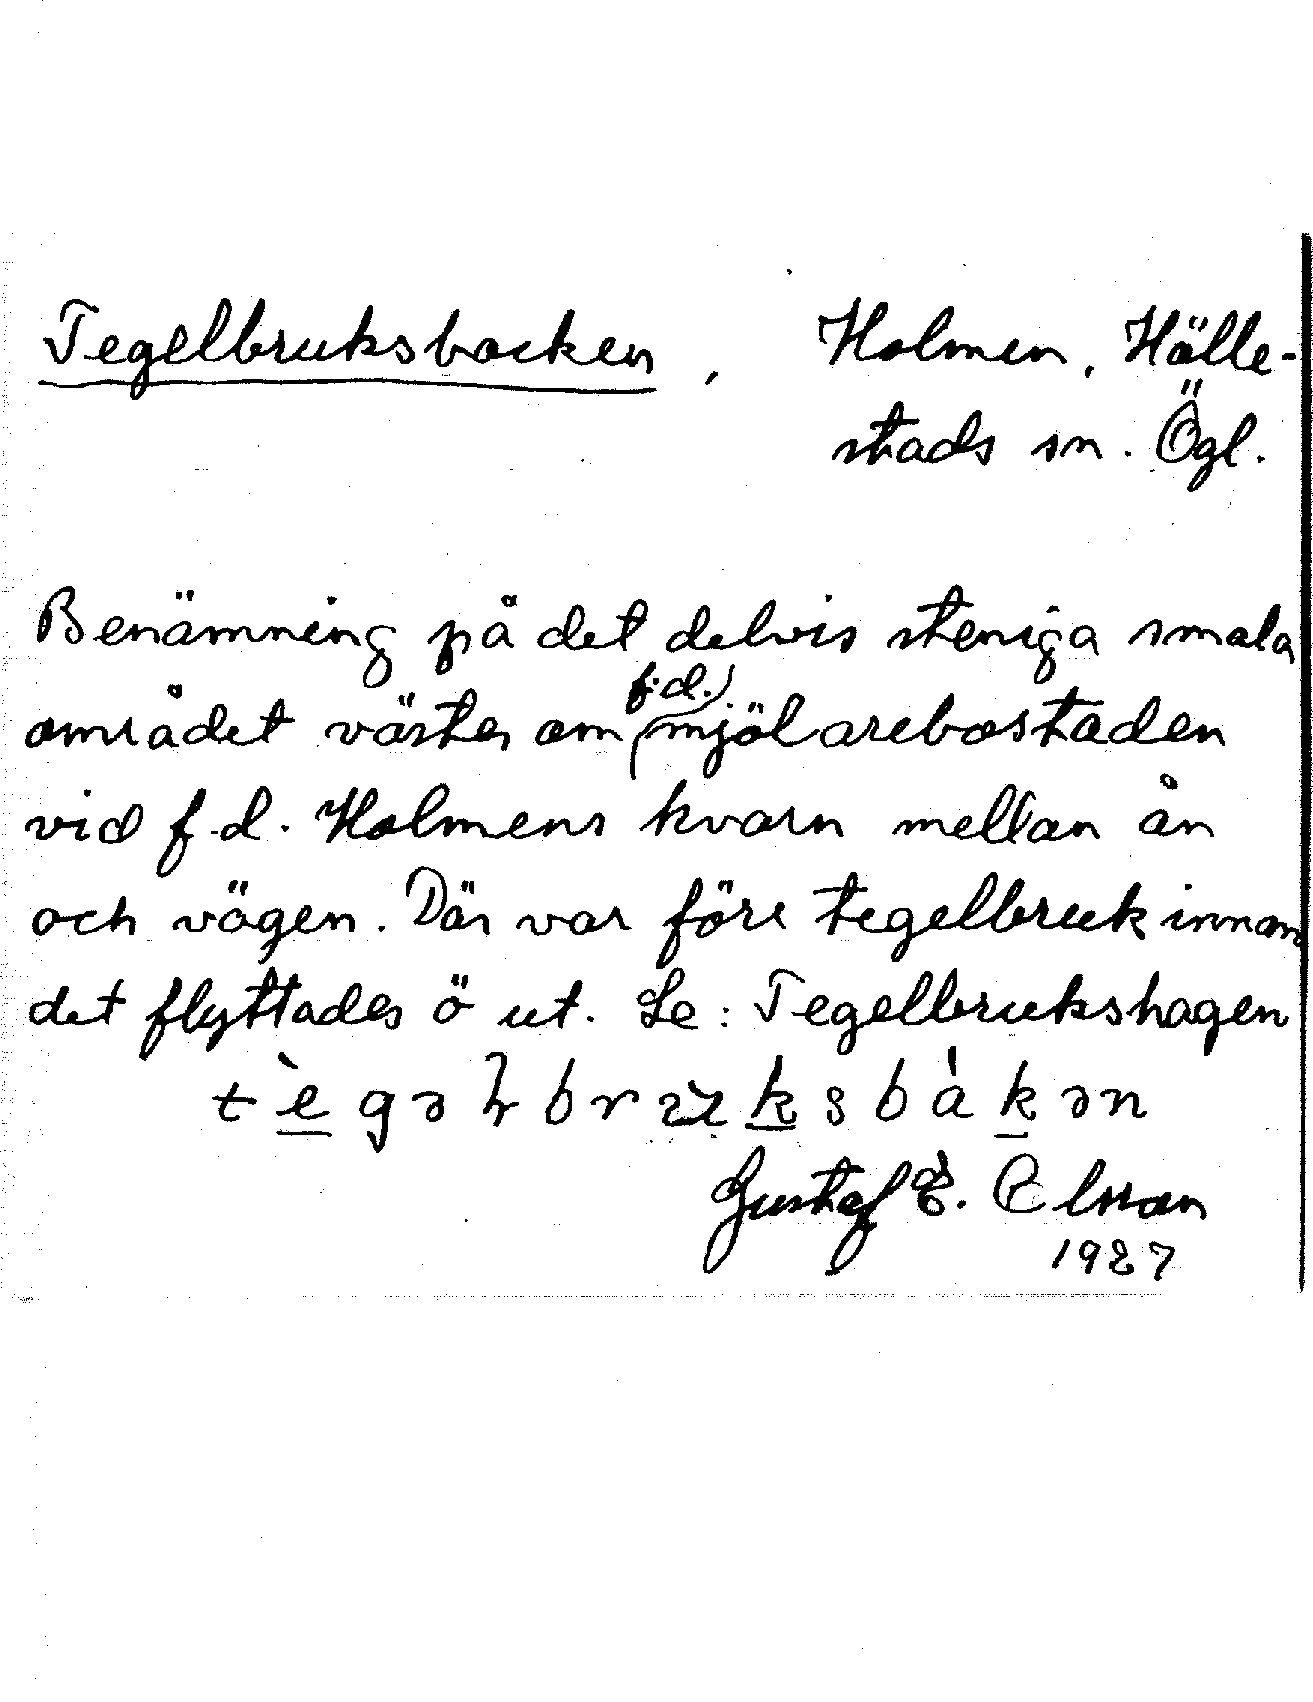 Tegelbruksbacken, Holmen, Hälle-
stads sn. Ögl.
Benämning på det delvis steniga smala
området väster om f.d. mjölarebostaden
vid f.d. Holmens kvarn mellan ån
och vägen. Där var förr tegelbruk innan
det flyttades ö ut. Se: Tegelbrukshagen
tègəɫbruksbàkən
Gustaf E. Elsson
1927